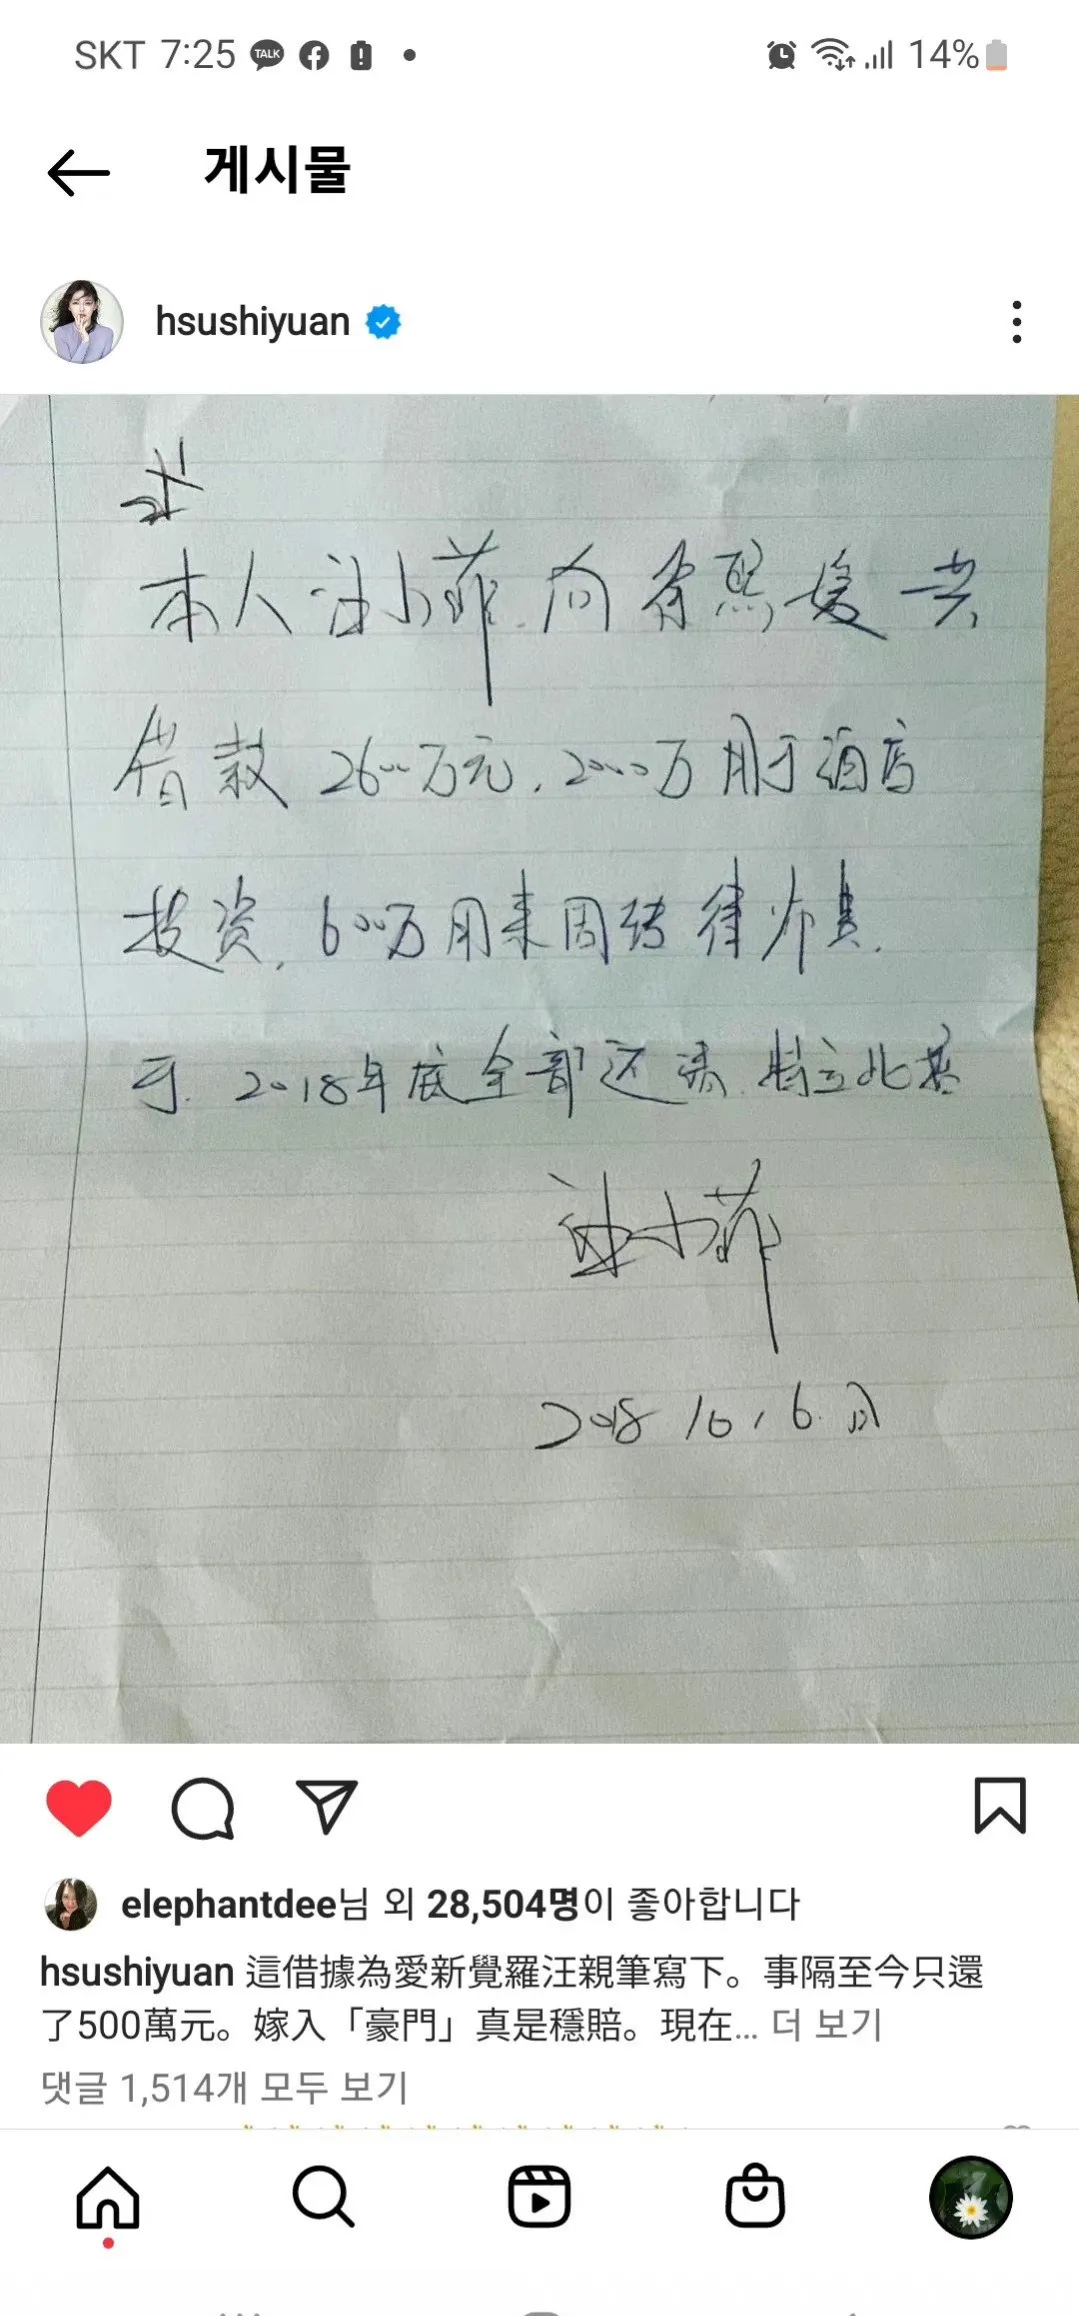 SKT 7:25 TALK 14%
게시물
hsushiyuan
本人汪小菲向徐熙媛共
借款2600万元，2000万用于酒店
投资，600万用来周转律师费，
于2018年底全部还清，特立此据
汪小菲
2018 10，6
elephantdee님 외 28,504명이 좋아합니다
hsushiyuan 這借據為愛新覺羅汪親筆寫下。事隔至今只還
了500萬元。嫁入「豪門」真是穩賠。現在... 더 보기
댓글 1,514개 모두 보기